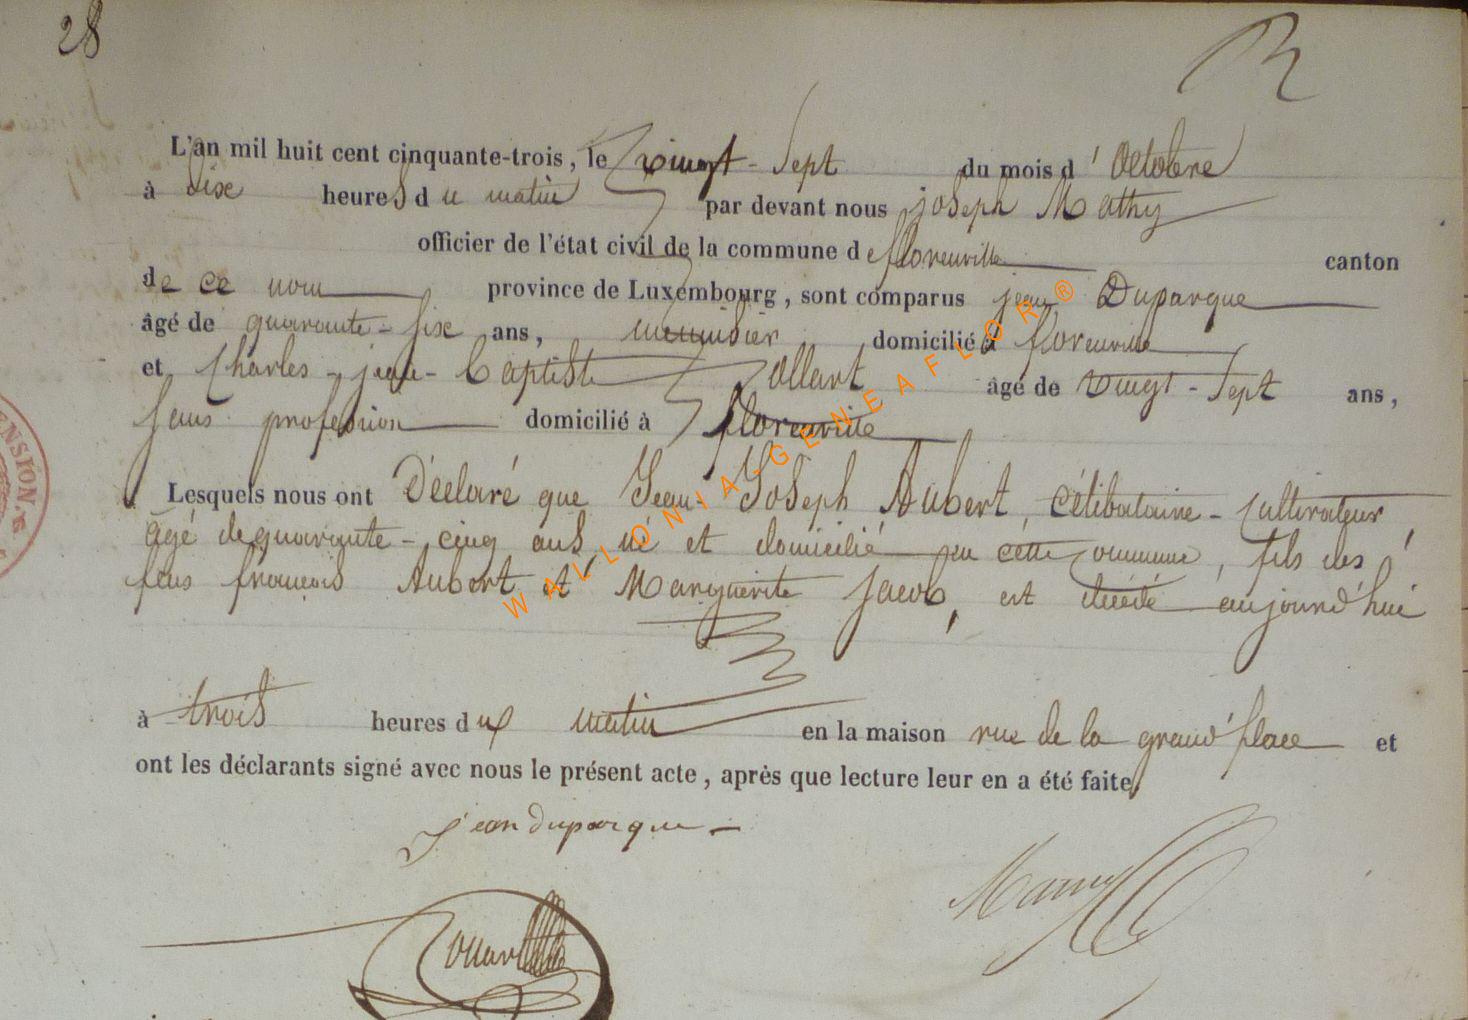 28
L'an mil huit cent cinquante-trois, le vingt-sept du mois d'Octobre
à dix heures du matin par devant nous joseph Mathy
officier de l'état civil de la commune de florenville canton
de ce nom province de Luxembourg, sont comparus jean Duparque
âgé de quarante-six ans, menuisier domicilié à florenville
et Charles-jean-Baptiste Collart âgé de vingt-sept ans,
sans profession domicilié à florenville
Lesquels nous ont Déclaré que Jean Joseph Aubert, célibataire-cultivateur,
âgé de quarante-cinq ans né et domicilié en cette commune, fils des
feus françois Aubert et Marguerite jacob, est décédé aujourd'hui
à trois heures du matin en la maison rue de la grand'place et
ont les déclarants signé avec nous le présent acte, après que lecture leur en a été faite.
jean duparque
Collart
WALLONIA-GENEAFLOR®
ENSION.